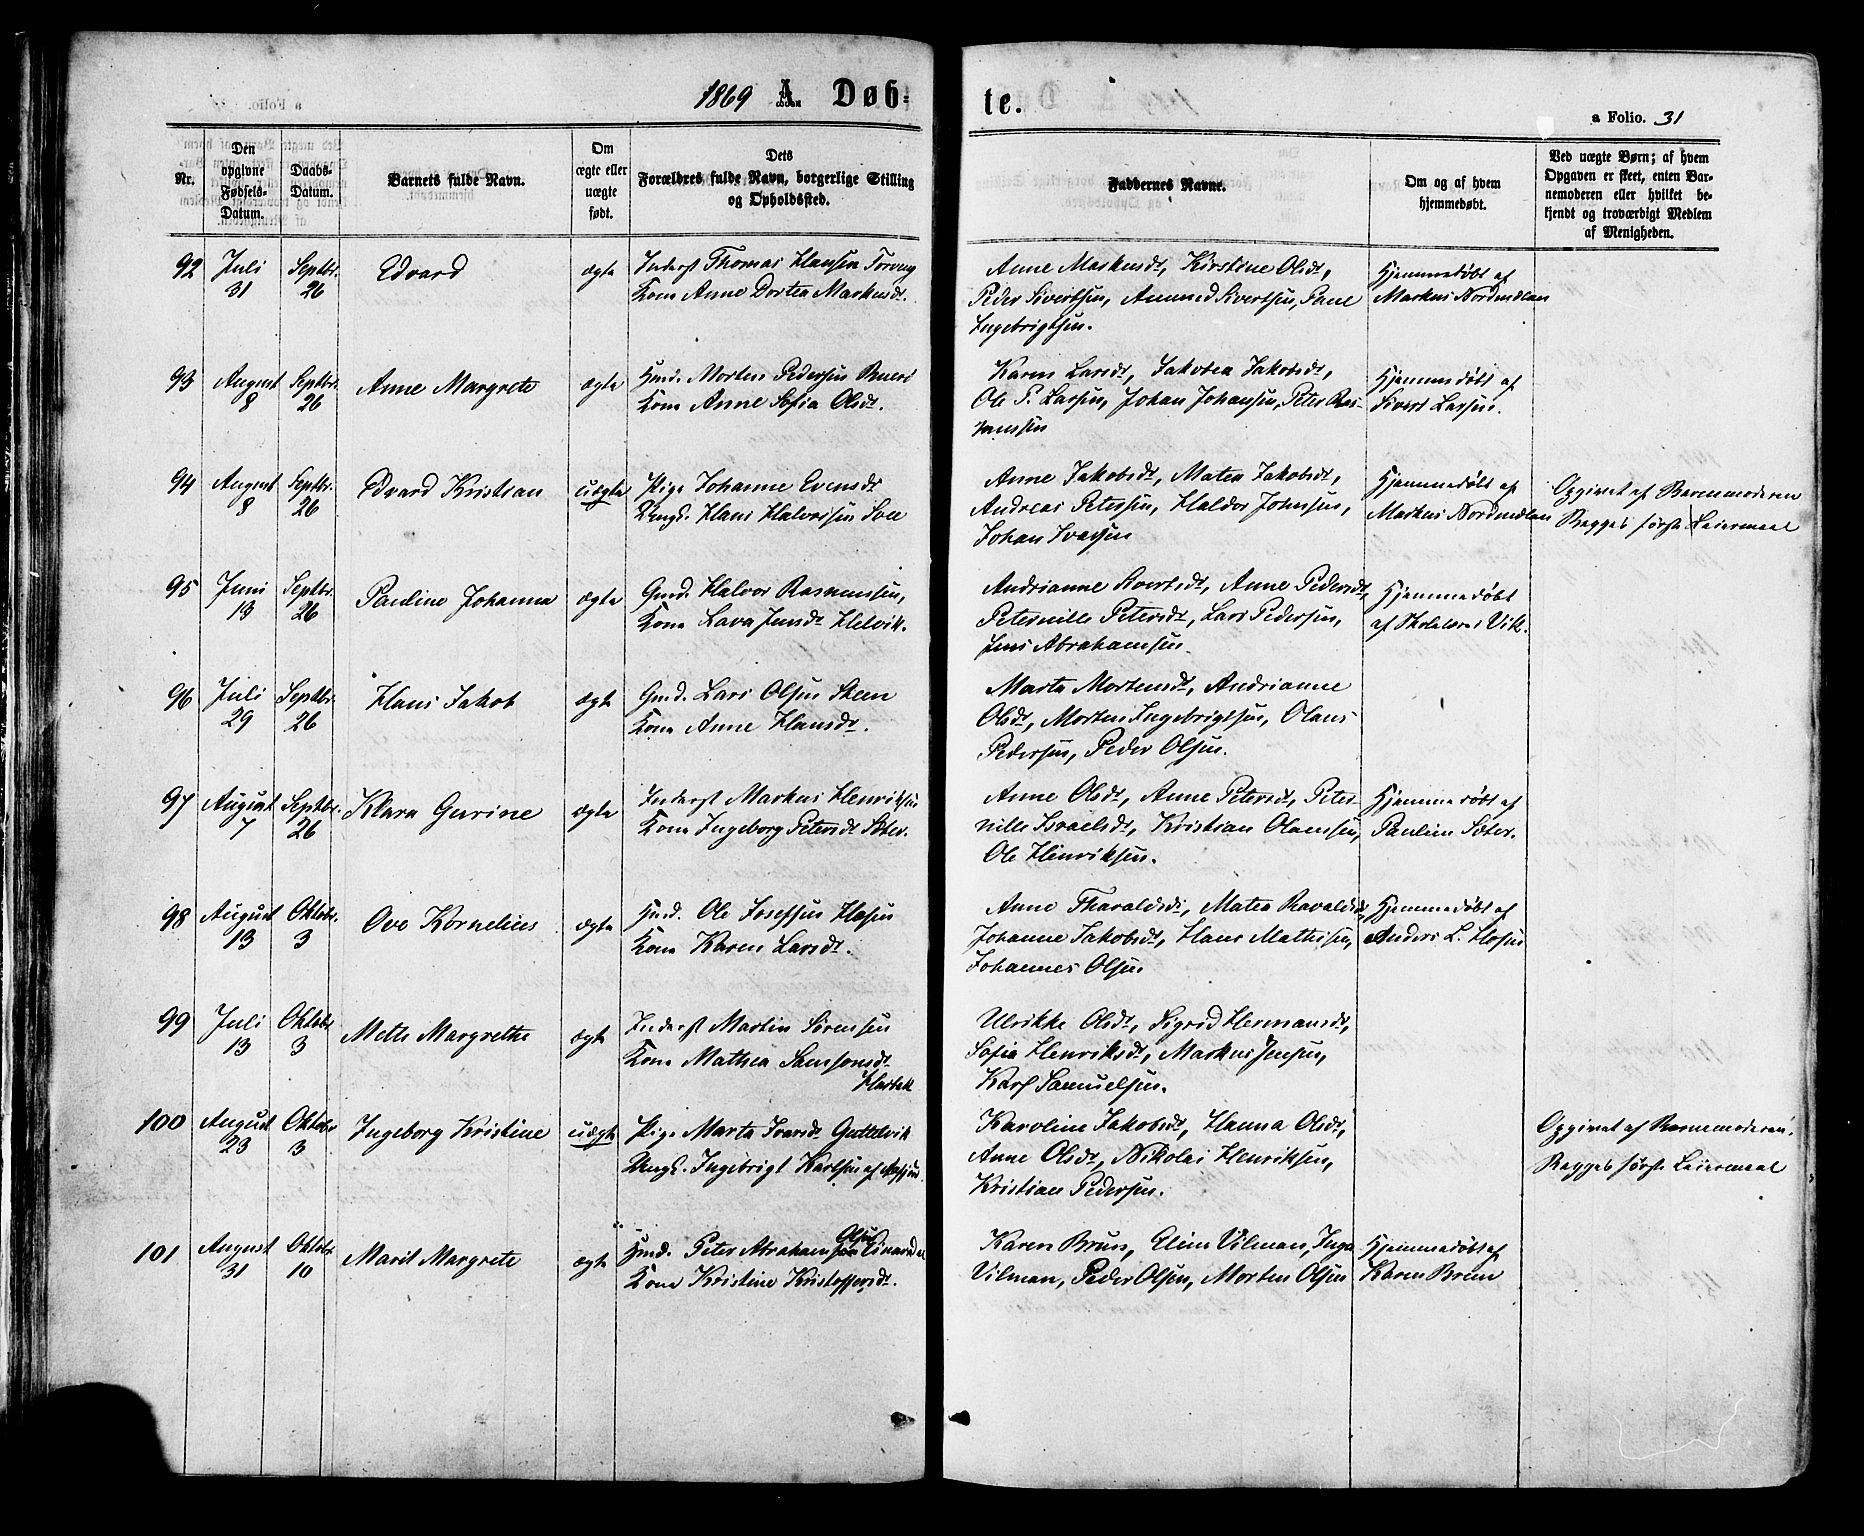 1869 A. Døb=
te.
a Folio. 31
Nr.
Den opgivne Fødsels-Datum.
Daabs-Datum.
Barnets fulde Navn.
Om ægte eller uægte født.
Dets Forældres fulde Navn, borgerlige Stilling og Opholdssted.
Faddernes Navne.
Om og af hvem hjemmedøbt.
Ved uægte Børn; af hvem Opgaven er skeet, enten Barnemoderen eller hvilket bekjendt og troværdigt Medlem af Menigheden.
92 Juli 31 Septbr. 26 Edvard ægte
Inderst Thomas Hansen
Kone Anne Dortea Markusdt.
Anne Markusdt, Kirstine Olsdt,
Peder Sivertsen, Ammed Sivertsen, Paul
Ingebrigtsen.
Hjemmedøbt af
Markus Nordmelan
93 August 8 Septbr. 26 Anne Margrete ægte
Gmd. Morten Pedersen
Kone Anne Sofia Olsdt.
Karen Larsdt, Jakobea Jakobsdt,
Ole P. Larsen, Johan Johansen, Peter Ras-
mussen
Hjemmedøbt af
Sivert Larsen.
94 August 8 Septbr. 26 Edvard Kristian uægte
Pige Johanne Evensdt
Ungk. Hans Halvorsen
Anne Jakobsdt, Matea Jakobsdt,
Andreas Petersen, Haldor Johnsen,
Johan Ivarsen
Hjemmedøbt af
Markus Nordmelan
Opgivet af Barnemoderen
Begges første Leiermaal
95 Juni 13 Septbr. 26 Pauline Johanna ægte
Gmd. Halvor Rasmussen,
Kone Lava Jensdt Helvik.
Andrianne Sivertsdt, Anne Pedersdt,
Peternille Petersdt, Lars Pedersen,
Jens Abrahamsen
Hjemmedøbt
af Skolelærer Vik.
96 Juli 29 Septbr. 26 Hans Jakob ægte
Gmd. Lars Olsen
Kone Anne Hansdt.
Marta Mortensdt, Andrianne
Olsdt, Morten Ingebrigtsen, Olaus
Pedersen, Peder Olsen.
97 August 7 Septbr. 26 Klara Gurine ægte
Inderst Markus Henriksen
Kone Ingeborg Petersdt Sæter.
Anne Olsdt, Anne Petersdt, Peter-
nille Israelsdt, Kristian Olausen,
Ole Henriksen.
Hjemmedøbt af
Pauline Sæter.
98 August 13 Oktobr. 3 Ove Kornelius ægte
Gmd. Ole Josefsen
Kone Karen Larsdt.
Anne Tharaldsdt, Matea
Johanne Jakobsdt, Hans Mathisen,
Johannes Olsen.
Hjemmedøbt af
Anders L.
99 Juli 13 Oktobr. 3 Mette Margrethe ægte
Inderst Martin Sørensen
Kone Mathea Samsonsdt
Ulrikke Olsdt, Sigrid Hermansdt,
Sofia Henriksdt, Markus Jensen,
Karl Samuelsen.
100 August 23 Oktobr 3 Ingeborg Kristine uægte
Pige Marta Ivarsdt Guttelvik
Ungk. Ingebrigt Karlsen af
Karoline Jakobsdt, Hanna Olsdt,
Anne Olsdt, Nikolai Henriksen,
Kristian Pedersen.
Opgivet af Barnemoderen.
Begges første Leiermaal
101 August 31 Oktobr 10 Marit Margrete ægte
Olsen
Gmd. Peter Abraham
Kone Kristine Kristoffersdt.
Karen Brun, Eline Vilman, Inga
Vilman, Peder Olsen, Morten Olsen
Hjemmedøbt af
Karen Brun